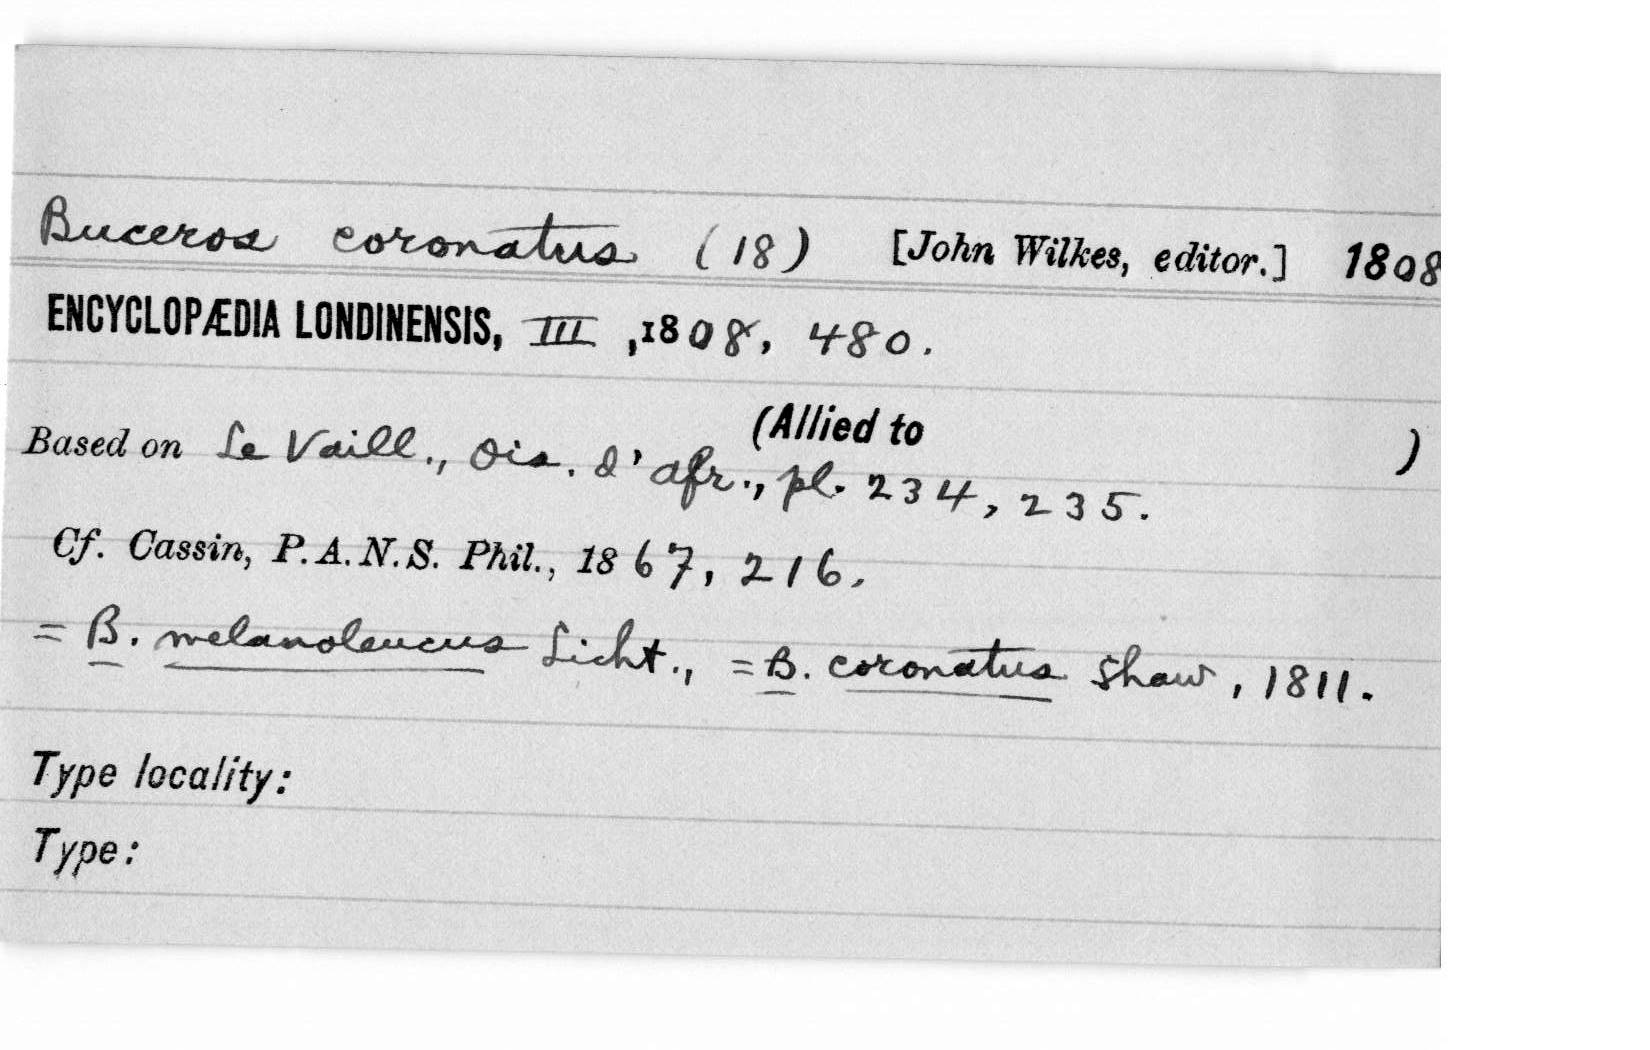 Buceros coronatus (18) [John Wilkes, editor.] 1808
ENCYCLOPÆDIA LONDINENSIS, III, 1808, 480.
(Allied to )
Based on Le Vaill., Ois. d'afr., pl. 234, 235.
Cf. Cassin, P.A.N.S. Phil., 1867, 216.
= B. melanoleucus Licht., = B. coronatus Shaw, 1811.
Type locality:
Type: